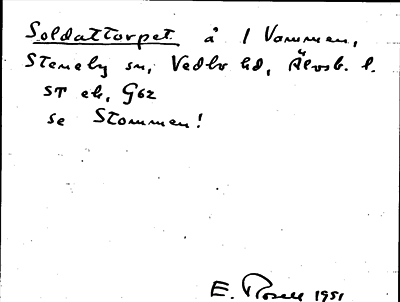 Soldattorpet å 1 Vammen,
Steneby sn, Vedbo hd, Älvsb. l.
ST ek, G62
se Stommen!
E. Rosell 1951